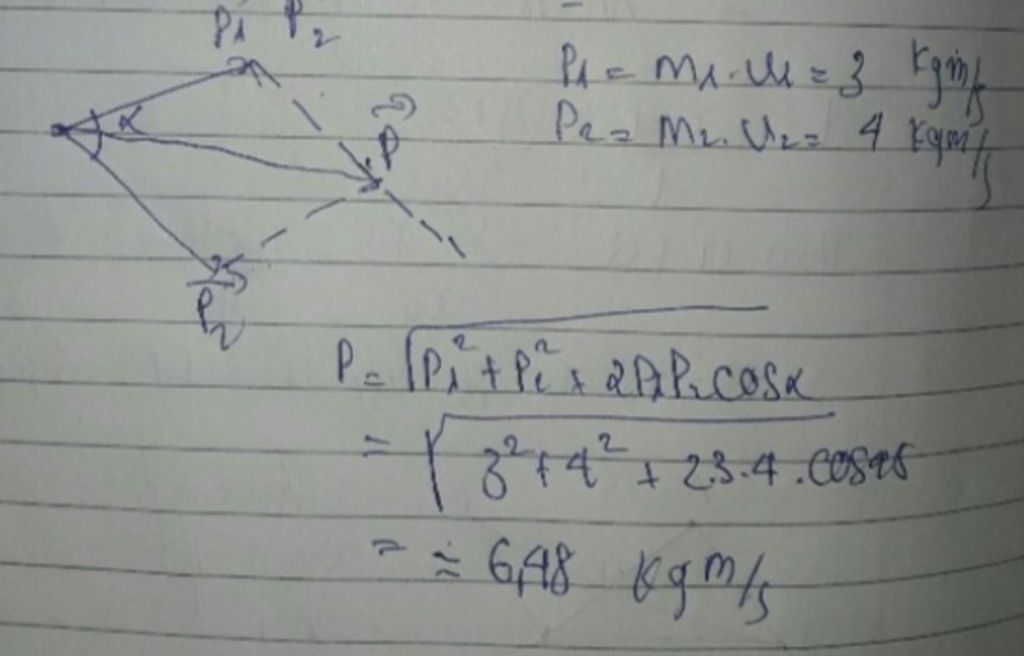 P₁ P₂
P₁ = m₁.v₁ = 3 kgm/s
P₂ = m₂.v₂ = 4 kgm/s
α
P
P₂
P = √P₁² + P₂² + 2P₁P₂cosα
= √3² + 4² + 2.3.4.cos45
= ≈ 6,48 kgm/s